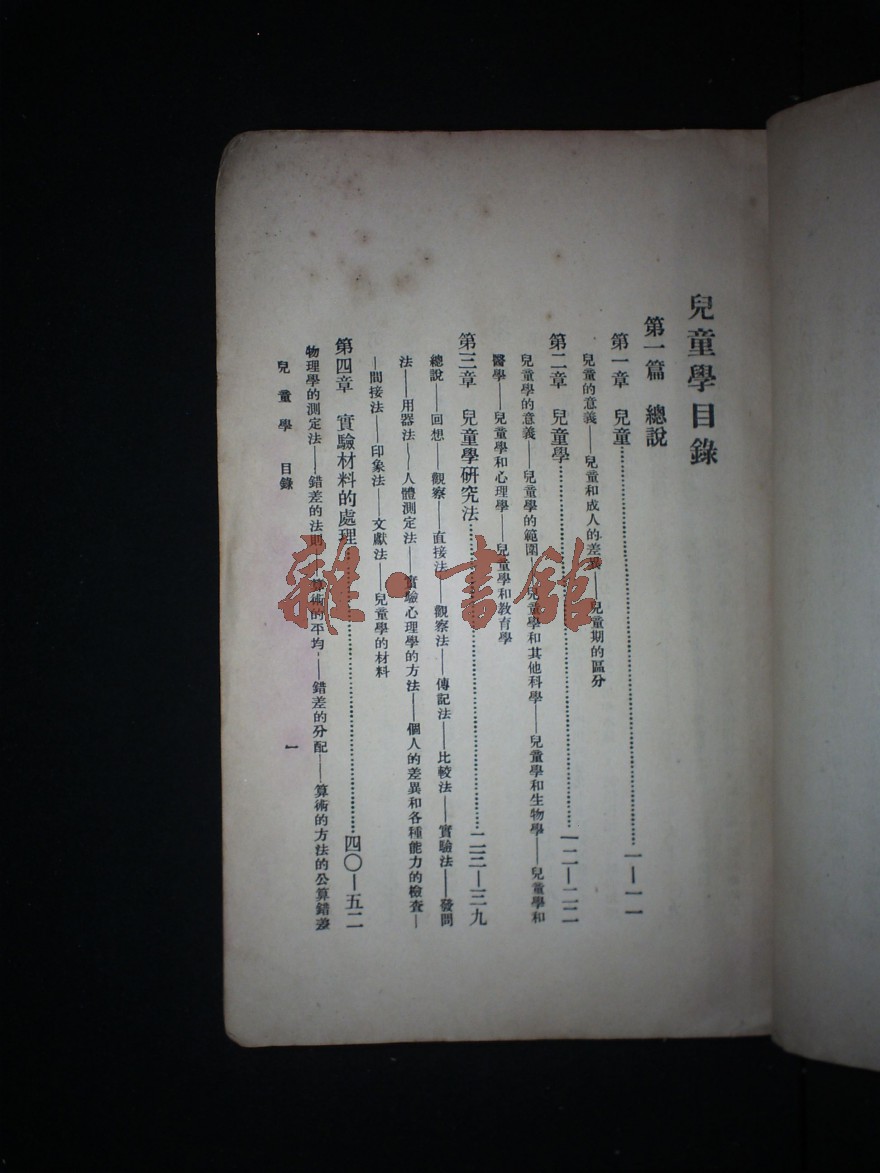 兒童學目錄
第一篇　總說
第一章　兒童……………………一—一一
兒童的意義——兒童和成人的差異——兒童期的區分
第二章　兒童學……………………一二—二二
兒童學的意義——兒童學的範圍——兒童學和其他科學——兒童學和生物學——兒童學和
醫學——兒童學和心理學——兒童學和教育學
第三章　兒童學研究法……………………二三—三九
總說——回想——觀察——直接法——觀察法——傳記法——比較法——實驗法——發問
法——用器法——人體測定法——實驗心理學的方法——個人的差異和各種能力的檢查—
—間接法——印象法——文獻法——兒童學的材料
第四章　實驗材料的處理……………………四〇—五二
物理學的測定法——錯差的法則——算術的平均——錯差的分配——算術的方法的公算錯差
兒童學　目錄
一
雜·書館